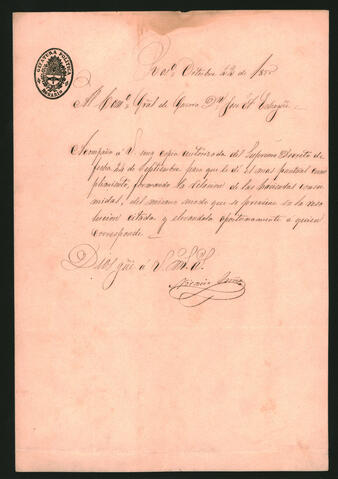 GEFATURA POLITICA
ROSARIO
Ros.º Octubre 22 de 18
Al Com.e Gral de Guerra D.n José
Acompaño á V. una copia autorizada del Supremo Decreto de
fecha 24 de Septiembre para que le dé el mas puntual cum
plimiento, formando la relacion de las
del mismo modo que se previene en la reso
lucion citada y elevandola oportunamente a quien
corresponde.
Dios gûe á V.